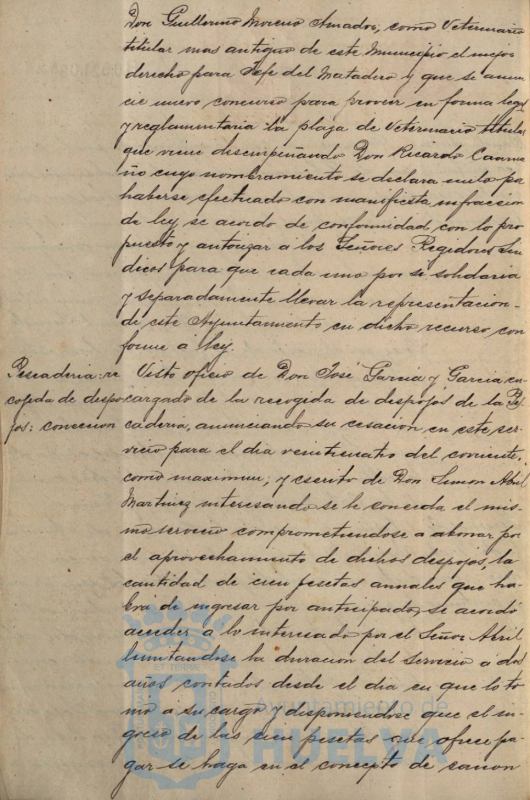 Don Guillermo Moreno Amador, como Veterinario
titular mas antiguo de este Municipio el mejor
derecho para Jefe del Matadero y que se anun
cie nuevo concurso para proveer en forma legal
y reglamentaria la plaza de Veterinario titular
que viene desempeñando Don Ricardo Caama
ño cuyo nombramiento se declara nulo por
haberse efectuado con manifiesta infraccion
de ley, se acordo de conformidad con lo pro
puesto y autorizar a los Señores Regidores Sin
dicos para que cada uno por si solidaria
y separadamente llevar la representacion
de este Ayuntamiento en dicho recurso con
forme a ley.
Pescaderia: re
cogida de despo
jos: concesion
Visto oficio de Don José Garcia y Garcia en
cargado de la recogida de despojos de la Pes
caderia, anunciando su cesacion en este ser
vicio para el dia veinticuatro del corriente,
como maximun; y escrito de Don Simon Abril
Martinez interesando se le conceda el mis
mo servicio comprometiendose a abonar por
el aprovechamiento de dichos despojos, la
cantidad de cien pesetas anuales que ha
bra de ingresar por anticipado, se acordó
acceder a lo interesado por el Señor Abril
limitandose la duracion del servicio a dos
años contados desde el dia en que lo to
mó a su cargo y disponiendose que el in
greso de las cien pesetas que ofrece pa
gar se haga en el concepto de canon
Ayuntamiento de
HUELVA